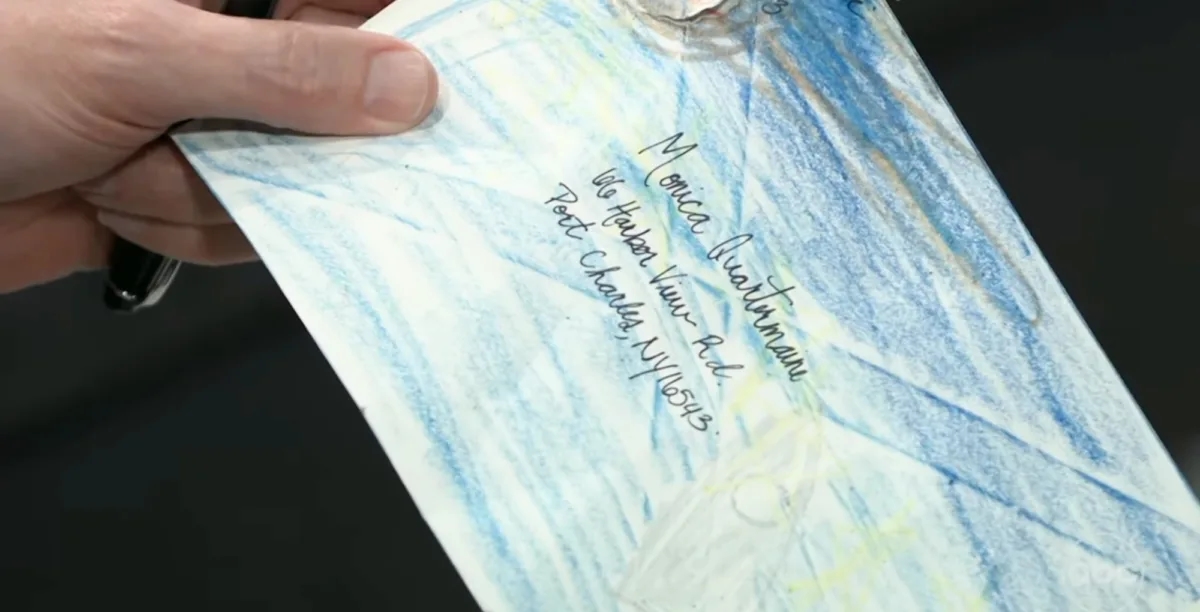 Monica Quartermaine
66 Harbor View Rd.
Port Charles, NY 16543.
abc